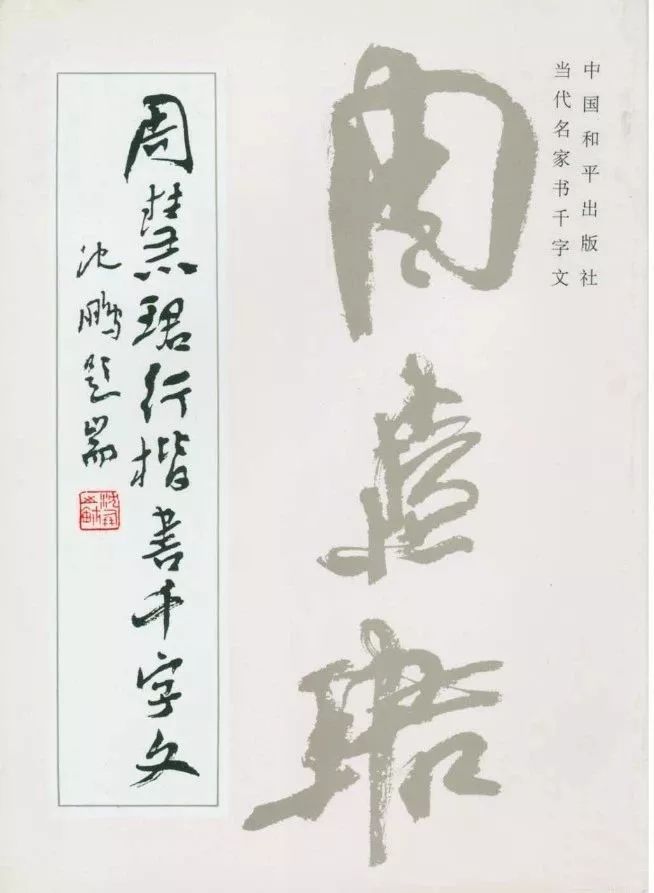 中国和平出版社
当代名家书千字文
周慧珺
周慧珺行楷书千字文
沈鹏题耑